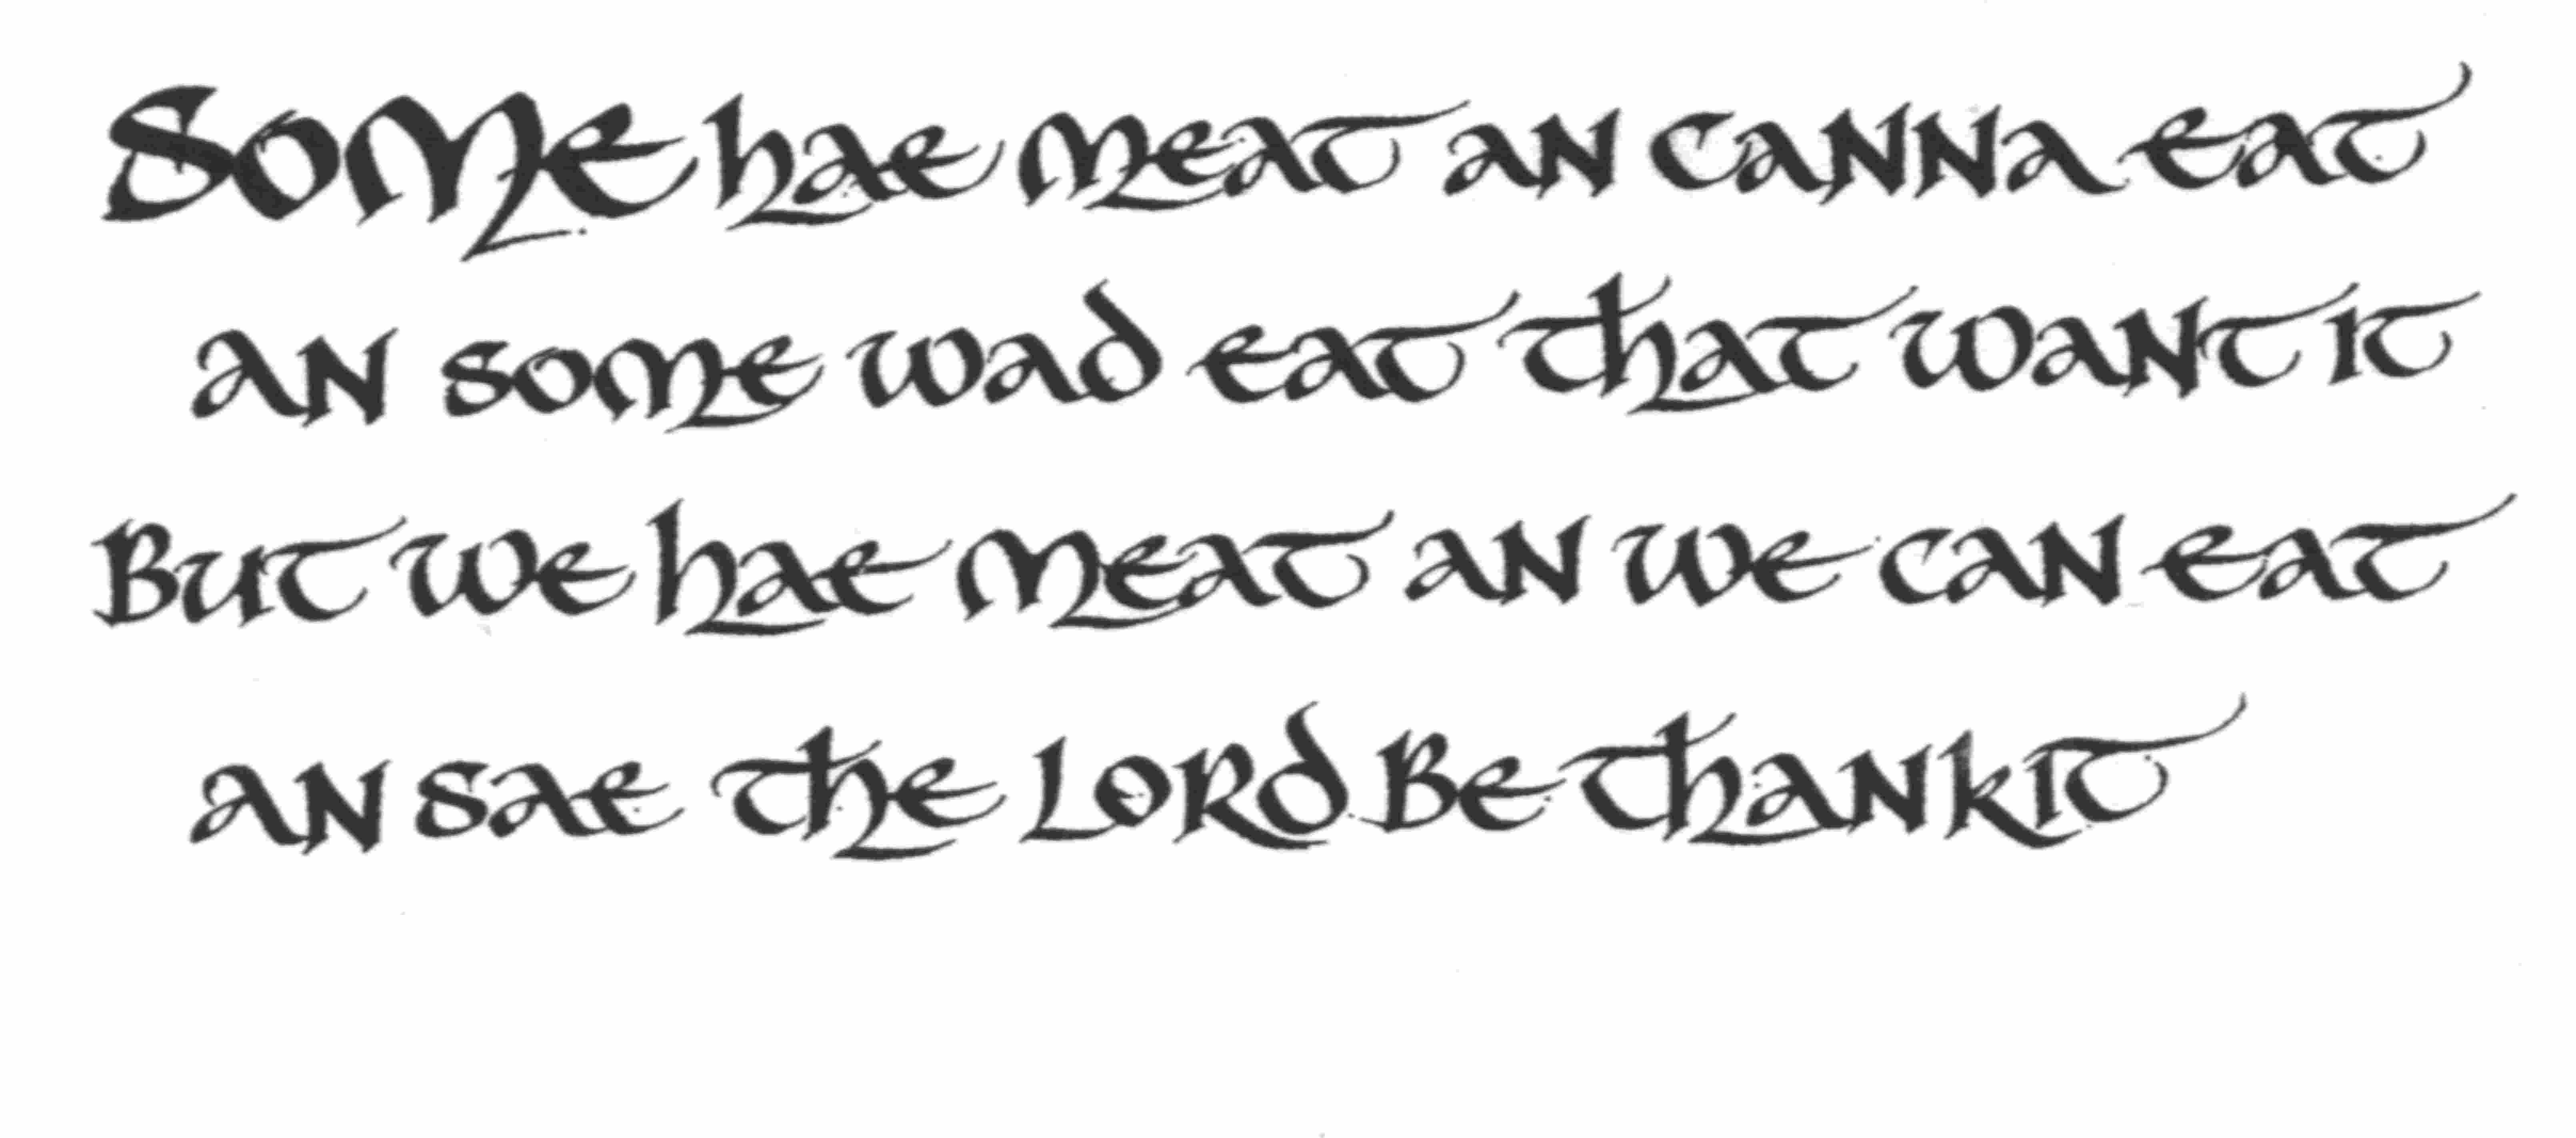 Some hae meat an canna eat
an some wad eat that want it
But we hae meat an we can eat
an sae the Lord Be thankit